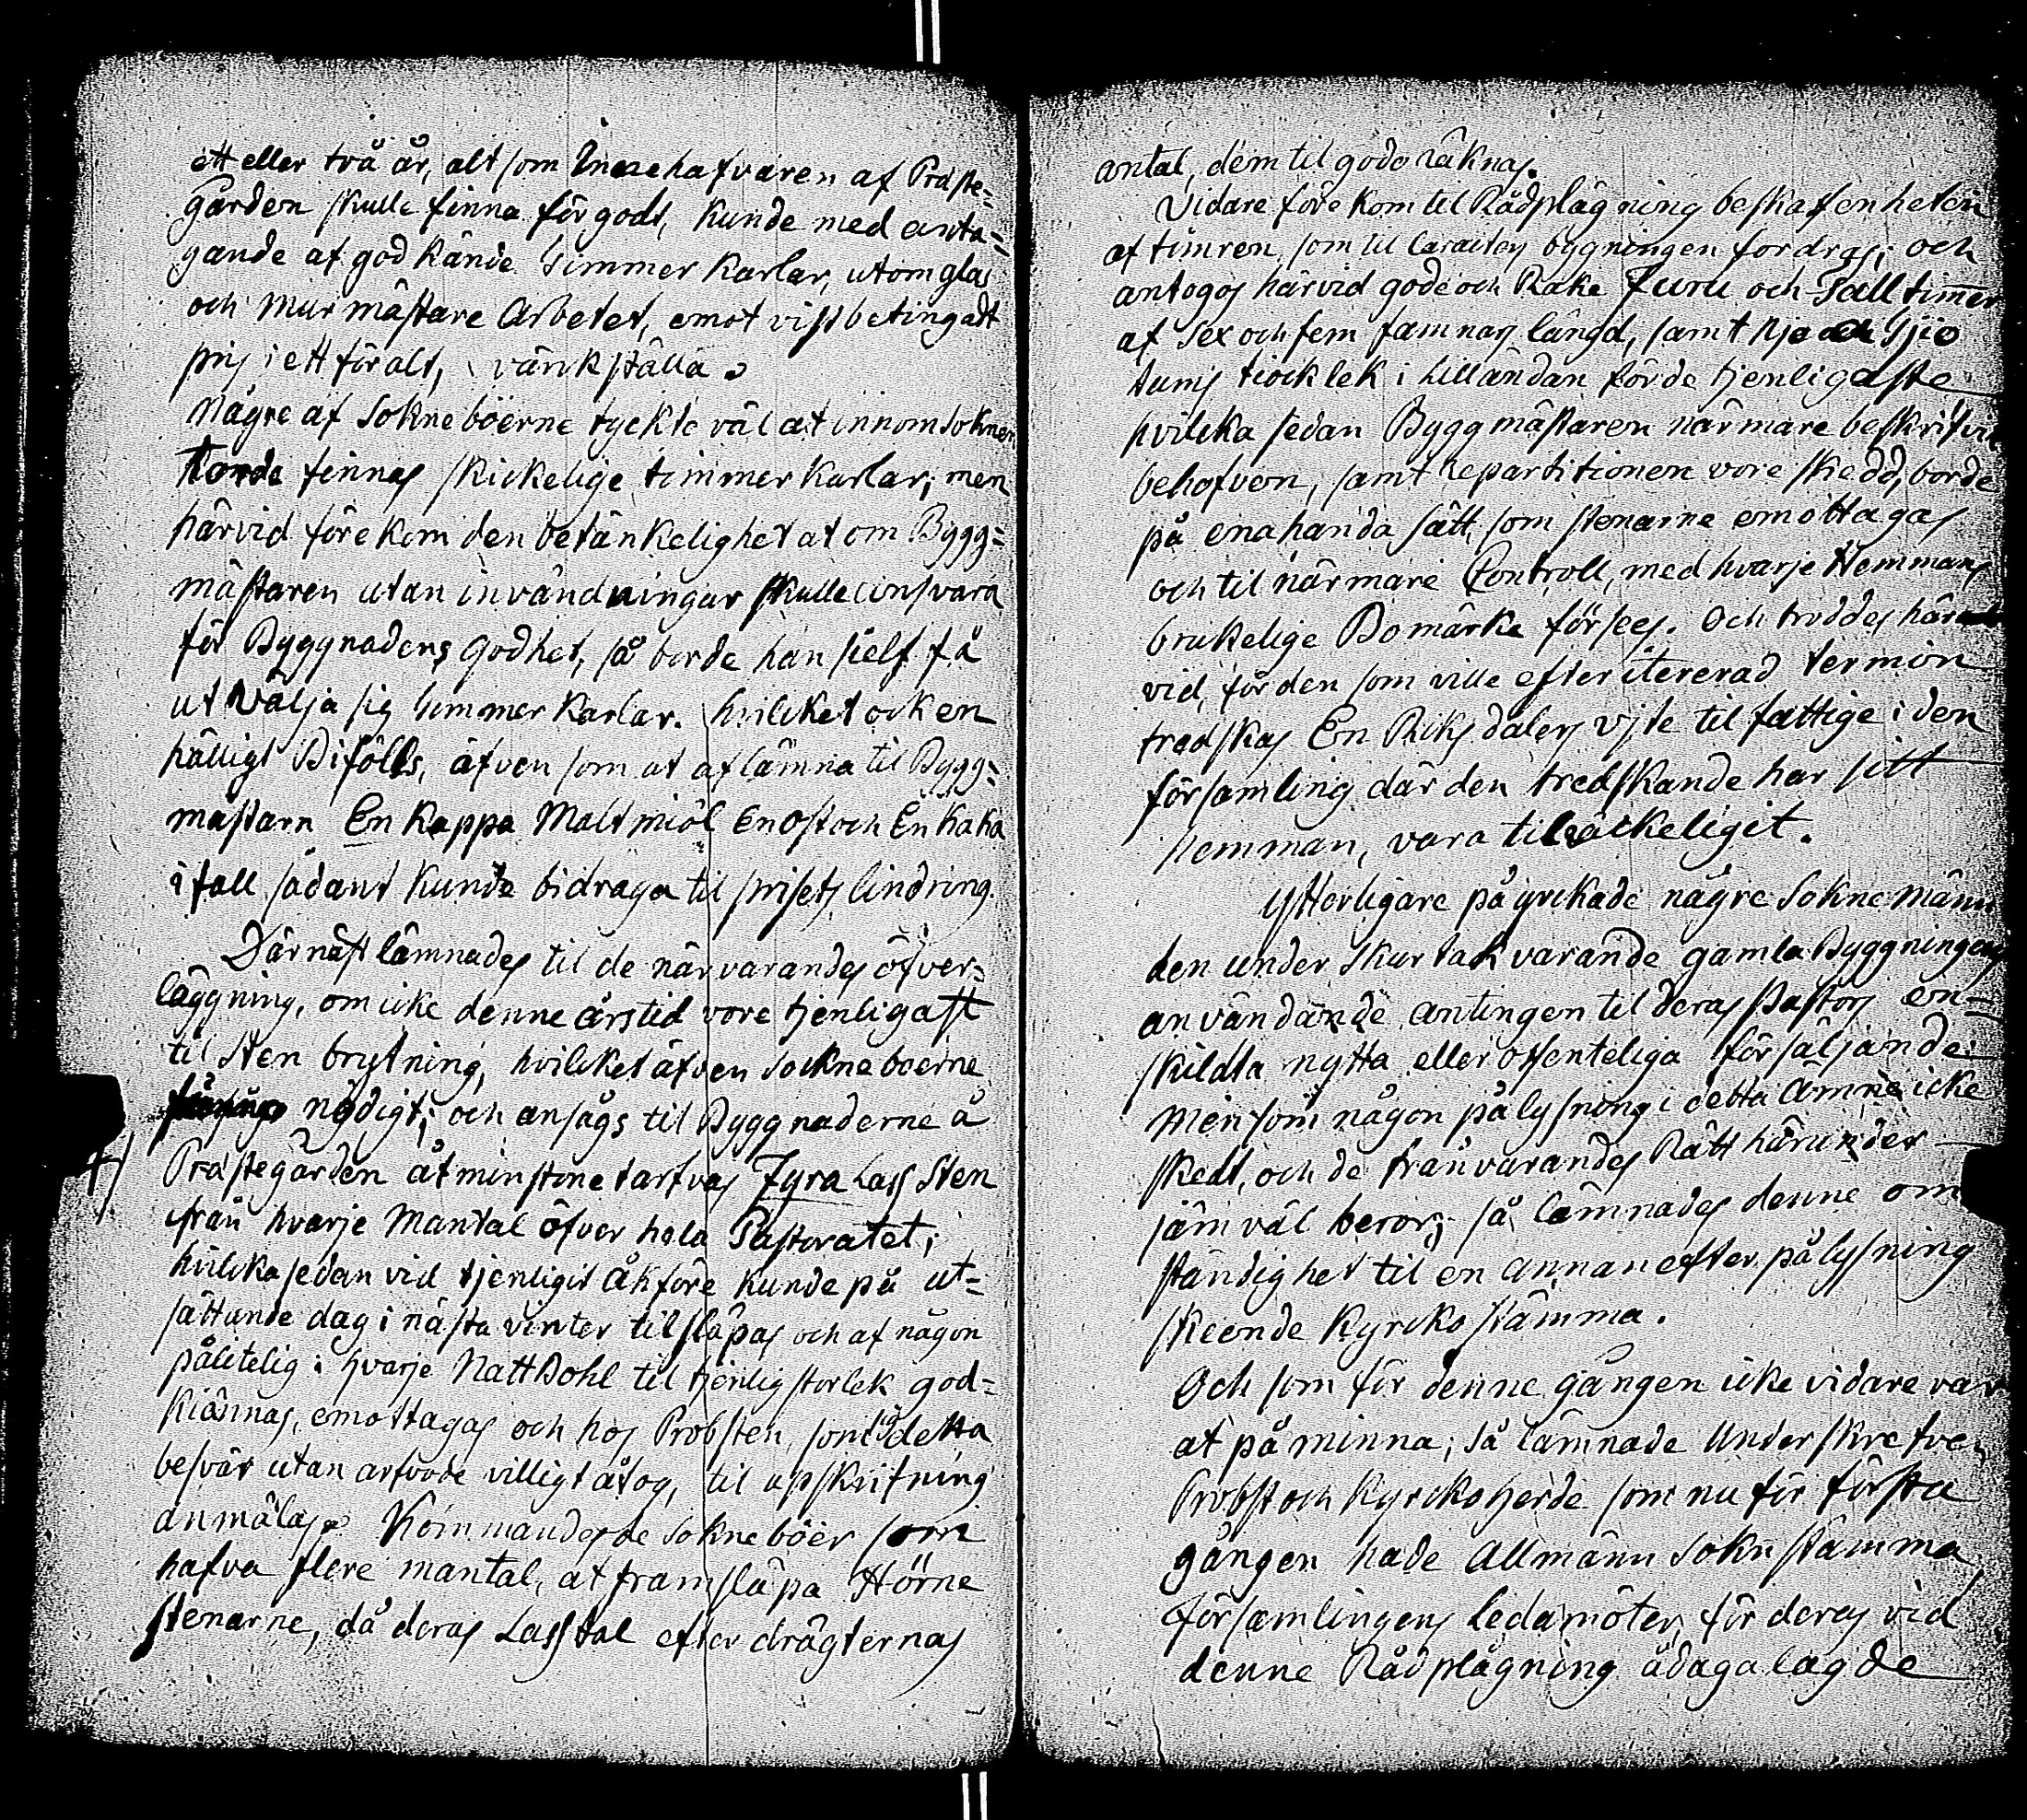 ett eller två år, alt som Innehafvaren af Präste-
Gården skulle finna för godt, kunde med anta-
gande af god kände Timmer Karlar, utom glas
och Mur mästare Arbetet, emot vist betingadt
pris i ett för alt, värkställa.
Någre af Sokneboerne tyckte väl at innom soknen
torde finnas skickelige timmer karlar; men
härvid förekom den betänkelighet at om Bygg=
mästaren utan invändningar skulle ansvara
för Byggnadens godhet, så borde han sielf få
utvälja sig timmer karlar. hvilcket ock en
hälligt Bifölls, äfven som at aflämna til Bygg=
mästarn En Kappa Maltmiöl En ost och En kaka
i fall sådant kunde bidraga til prisets lindring.
Därnäst lämnades til de närvarandes öfver=
läggning, om icke denne årstid vore tjenligast
til Sten brytning, hvilcket äfven sockneboerne
nödigt; och ansågs til Byggnaderne å
Prästegården åtminstone tarfvas Fyra Lass Sten
från hvarje Mantal öfver hela Pastoratet;
hvilcka sedan vid tjenligit åkföre kunde på ut=
sättande dag i nästa vinter tilsläpas och af någon
pålitelig i hvarje Nattbohl til tjenlig storlek god=
kiännas, emottagas och hos Probsten, som sig detta
besvär utan arfvode villigt åtog, til upskrifning
anmälas. Kommandes de sokneboer som
hafva flere mantal, at framsläpa Hörne
stenarne, då deras Lasstal efter drägternas
antal, dem til godo räknas.
Vidare förekom til Rådplägning beskaffenheten
af timren som til Caracters bygningen fordras; och
antogos härvid gode och Rake Furu och Tall timer
af Sex och fem famnars längd, samt Nje och Tjio
tums tiocklek i lilländan för de tjenligaste
hvilcka sedan Byggmästaren närmare beskrifvit
behofven, samt Repartitionen vore skedd, borde
på enahanda sätt som stenarne emottagas
och til närmare Controll, med hvarje Hemmans
brukelige Bomärke förses. Och troddes här
vid, för den som ville efter itererad termin
tredskas En Riksdalers vite til fattige i den
församling där den tredskande har sitt
Hemman, vara tilräckeligit.
Ytterligare påyrckade någre Sokne Männ
den under Skurtak varande gamla Byggningens
användande antingen til deras Pastors en-
skildta nytta eller offenteliga försäljande:
Men som någon pålysning i detta ämne icke
skedt, och de frånvarandes Rätt härunder
jämväl beror; så lämnades denne om
ständighet til en annan efter pålysning
skeende Kyrcko stämma.
Och som för denne gången icke vidare var
at påminna; så lämnade Underskrefven
Probst och Kyrckoherde som nu för första
gången hade Allmänn Sokn stämma
Församlingens ledamöter, för deras vid
denne Rådplägning ådagalagde